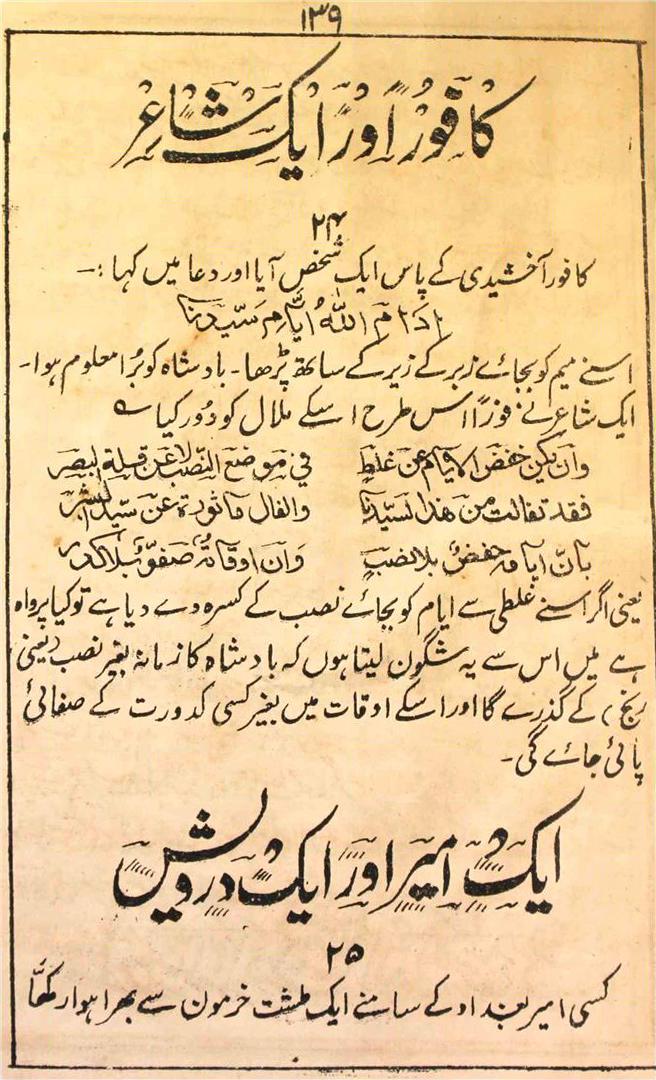 ۱۳۹
کافور اور ایک شاعر
۲۴
کافور آخشیدی کے پاس ایک شخص آیا اور دعا میں کہا :۔
اَدَامَ اللّٰهُ اَیَّامِ سَیِّدِنَا
اسنے میم کو بجائے زبر کے زیر کے ساتھ پڑھا۔ بادشاہ کو بُرا معلوم ہوا۔
ایک شاعر نے فوراً اس طرح اسکے ملال کو دُور کیا ؎
وان یکن خفض الایام عن غلطٍ فی موضع النصب لا عن قلة البصر
فقد تفالت من هذا لسیّدنا والفال ماثورة عن سیّد البشر
بانّ ایامه خفض بلا نصبٍ وَان اوقاته صفوٌ بلا کدر
یعنی اگر اسنے غلطی سے ایام کو بجائے نصب کے کسرہ دے دیا ہے تو کیا پرواہ
ہے میں اس سے یہ شگون لیتا ہوں کہ بادشاہ کا زمانہ بغیر نصب (یعنی
رنج) کے گذرے گا اور اسکے اوقات میں بغیر کسی کدورت کے صفائی
پائی جائے گی۔
ایک امیر اور ایک درویش
۲۵
کسی امیر بغداد کے سامنے ایک طشت خرمون سے بھرا ہوا رکھّا